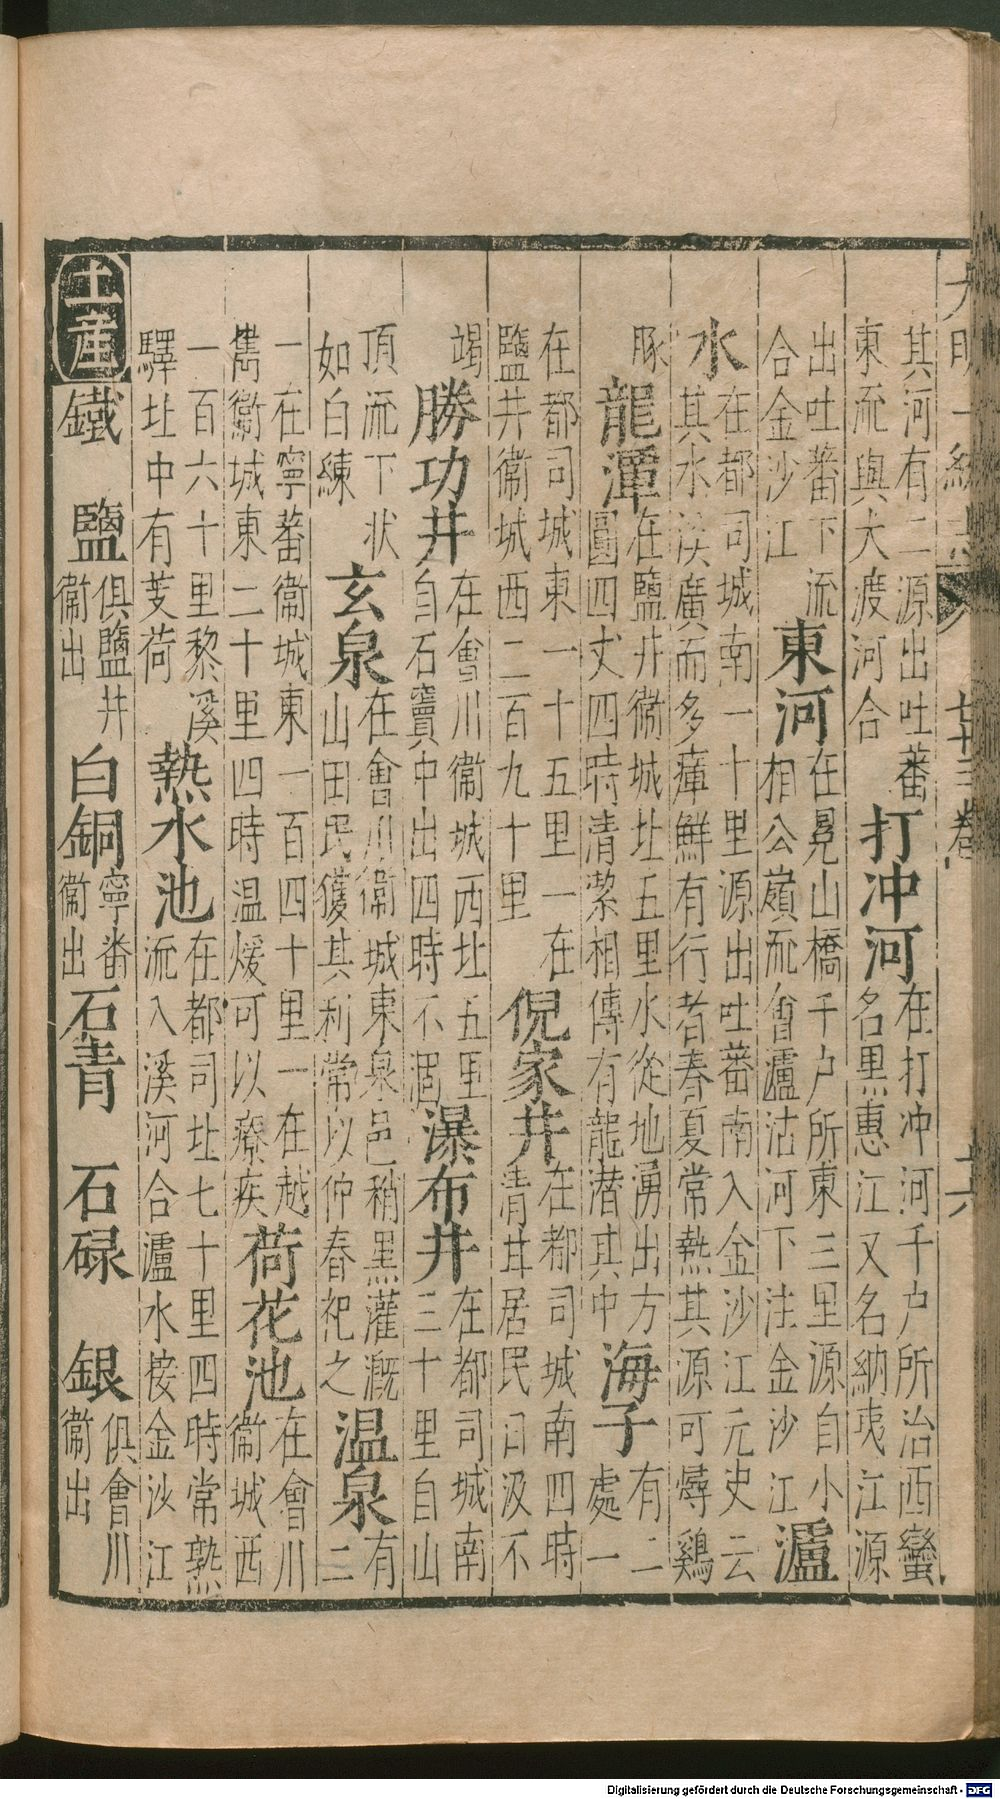 其河有二源出吐蕃
東流與大渡河合
打冲河
在打冲河千户所治西蠻
名黑惠江又名納夷江源
出吐蕃下流
合金沙江
東河
在晃山橋千户所東三里源自小
相公嶺流會瀘沽河下注金沙江
瀘
水
在都司城南一十里源出吐蕃南入金沙江元史云
其水深廣而多瘴鮮有行者春夏常熱其源可燖鷄
豚
龍潭
在鹽井衛城北五里水從地湧出方
圓四丈四時清潔相傳有龍潜其中
海子
有二
處一
在都司城東一十五里一在
鹽井衛城西二百九十里
倪家井
在都司城南四時
清井居民日汲不
竭
勝功井
在會川衛城西北五里
自石竇中出四時不涸
瀑布井
在都司城南
三十里自山
頂流下狀
如白練
玄泉
在會川衛城東泉邑稍黑灌溉
山田民獲其利常以仲春祀之
温泉
有
二
一在寧蕃衛城東一百四十里一在越
雋衛城東二十里四時温煖可以療疾
荷花池
在會川
衛城西
一百六十里黎溪
驛北中有芰荷
熱水池
在都司北七十里四時常熟
流入溪河合瀘水接金沙江
土産
鐵
鹽
俱鹽井
衛出
白銅
寧番
衛出
石青
石碌
銀
俱會川
衛出
Digitalisierung gefördert durch die Deutsche Forschungsgemeinschaft - DFG